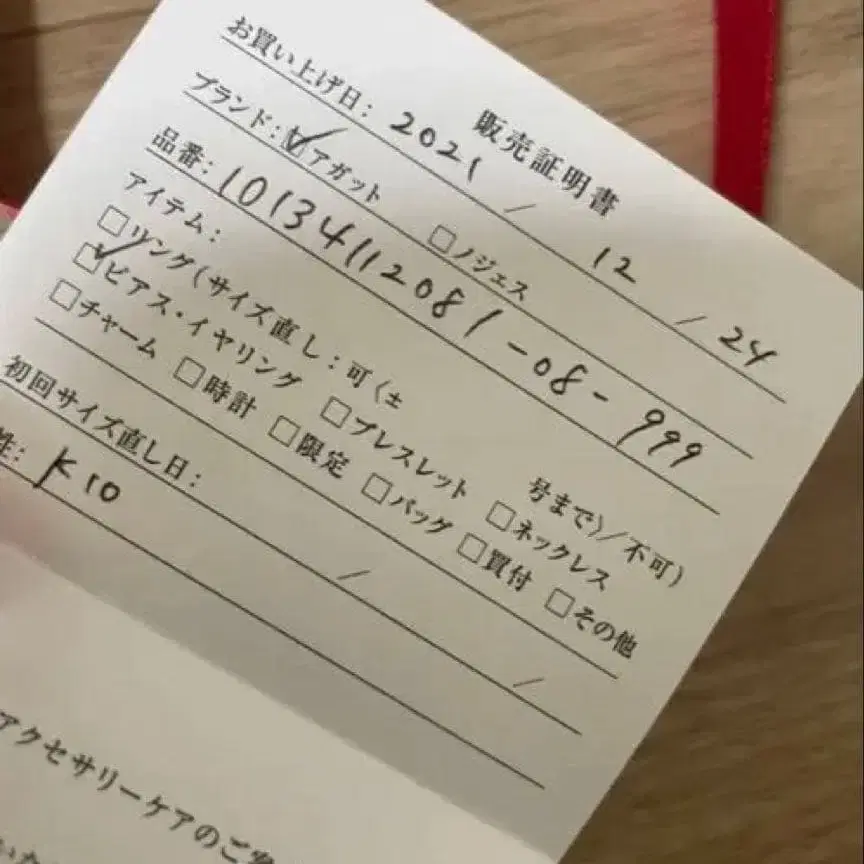 販売証明書
お買い上げ日: 2021 / 12 / 24
ブランド: ☑アガット □ノジェス
品番: 10134112081-08-999
アイテム:
□リング(サイズ直し:可(± 号まで)/不可)
☑ピアス・イヤリング □ブレスレット □ネックレス
□チャーム □時計 □限定 □バッグ □買付 □その他
初回サイズ直し日: / /
性: K10
アクセサリーケアのご案